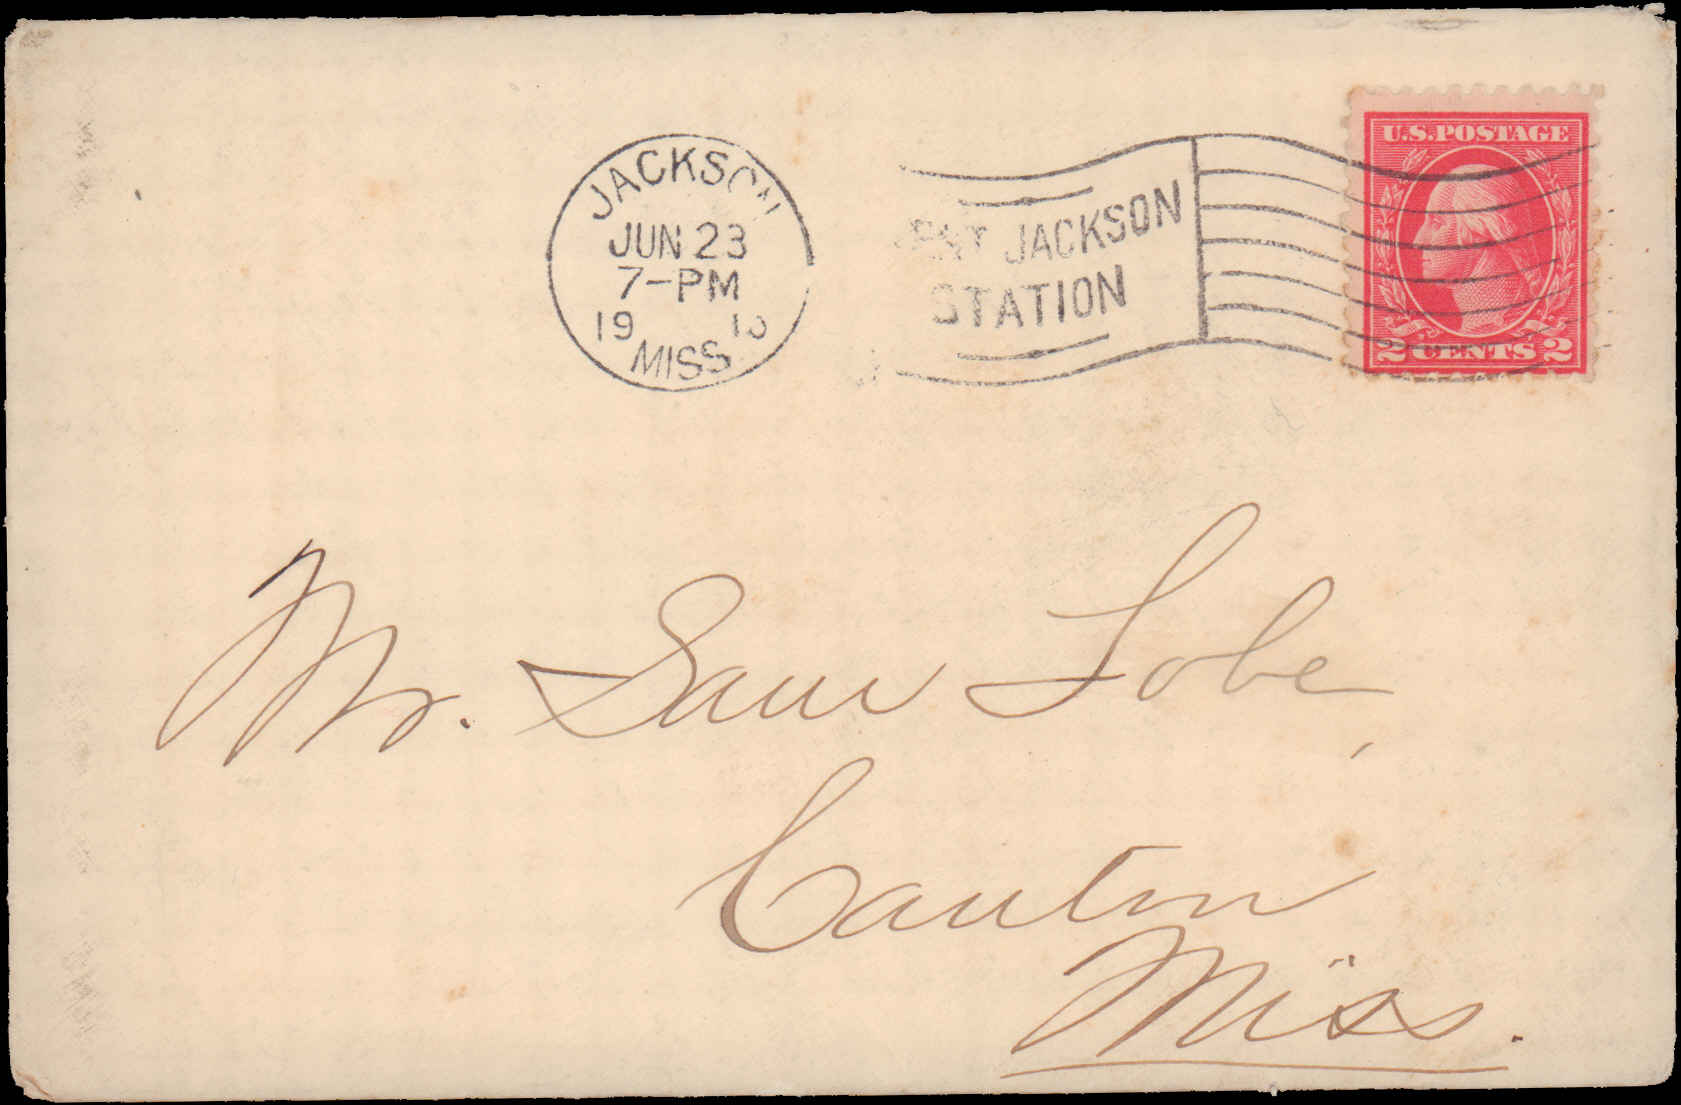 JACKSON
JUN 23
7-PM
19
MISS.
JACKSON
STATION
U.S.POSTAGE
2 CENTS 2
Mr. Sam Lobe,
Canton
Miss.